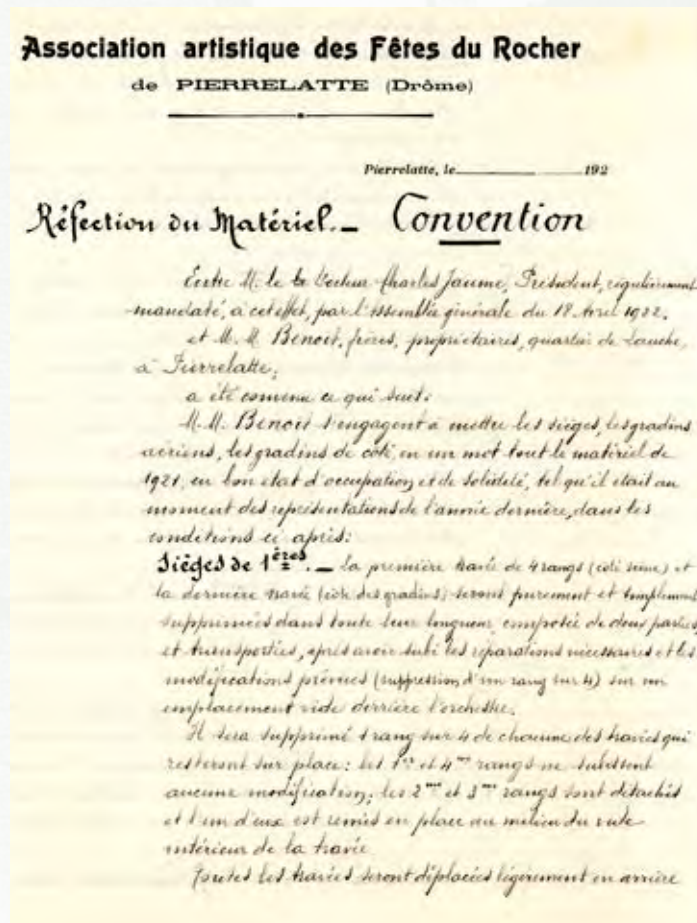 Association artistique des Fêtes du Rocher
de PIERRELATTE (Drôme)
Pierrelatte, le 192
Réfection du Matériel. _ Convention
Entre M. le Docteur Charles Jaume, Président, régulièrement
mandaté, à cet effet, par l'assemblée générale du 18 Avril 1922,
et M. M. Benoit, frères, propriétaires, quartier de
à Pierrelatte,
a été convenu ce qui suit:
M. M. Benoit s'engagent à mettre les sièges, les gradins
aériens, les gradins de côté, en un mot tout le matériel de
1921, en bon état d'occupation et de solidité, tel qu'il était au
moment des représentations de l'année dernière, dans les
conditions ci après:
Sièges de 1ères. _ La première travée de 4 rangs (côté scène) et
la dernière travée (côté des gradins) seront purement et simplement
supprimées dans toute leur longueur, composée de deux parties,
et transportées, après avoir subi les réparations nécessaires et les
modifications prévues (suppression d'un rang sur 4) sur un
emplacement vide derrière l'orchestre.
Il sera supprimé 1 rang sur 4 de chacune des travées qui
resteront sur place: les 1er et 4me rangs ne subissent
aucune modification; les 2me et 3me rangs sont détachés
et l'un d'eux est remis en place au milieu du vide
intérieur de la travée
Toutes les travées seront déplacées légèrement en arrière